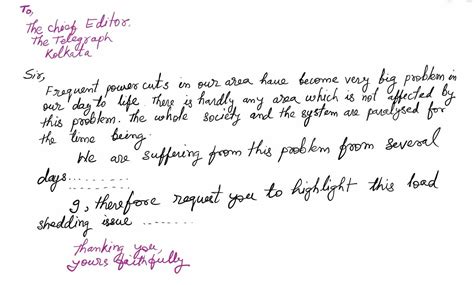 To,
The chief Editor.
The Telegraph
Kolkata
Sir,
Frequent power cuts in our area have become very big problem in
our day to life. There is hardly any area which is not affected by
this problem. The whole society and the system are paralysed for
the time being.
We are suffering from this problem from several
days..........
I, therefore request you to highlight this load
shedding issue ..........
Thanking you,
yours faithfully